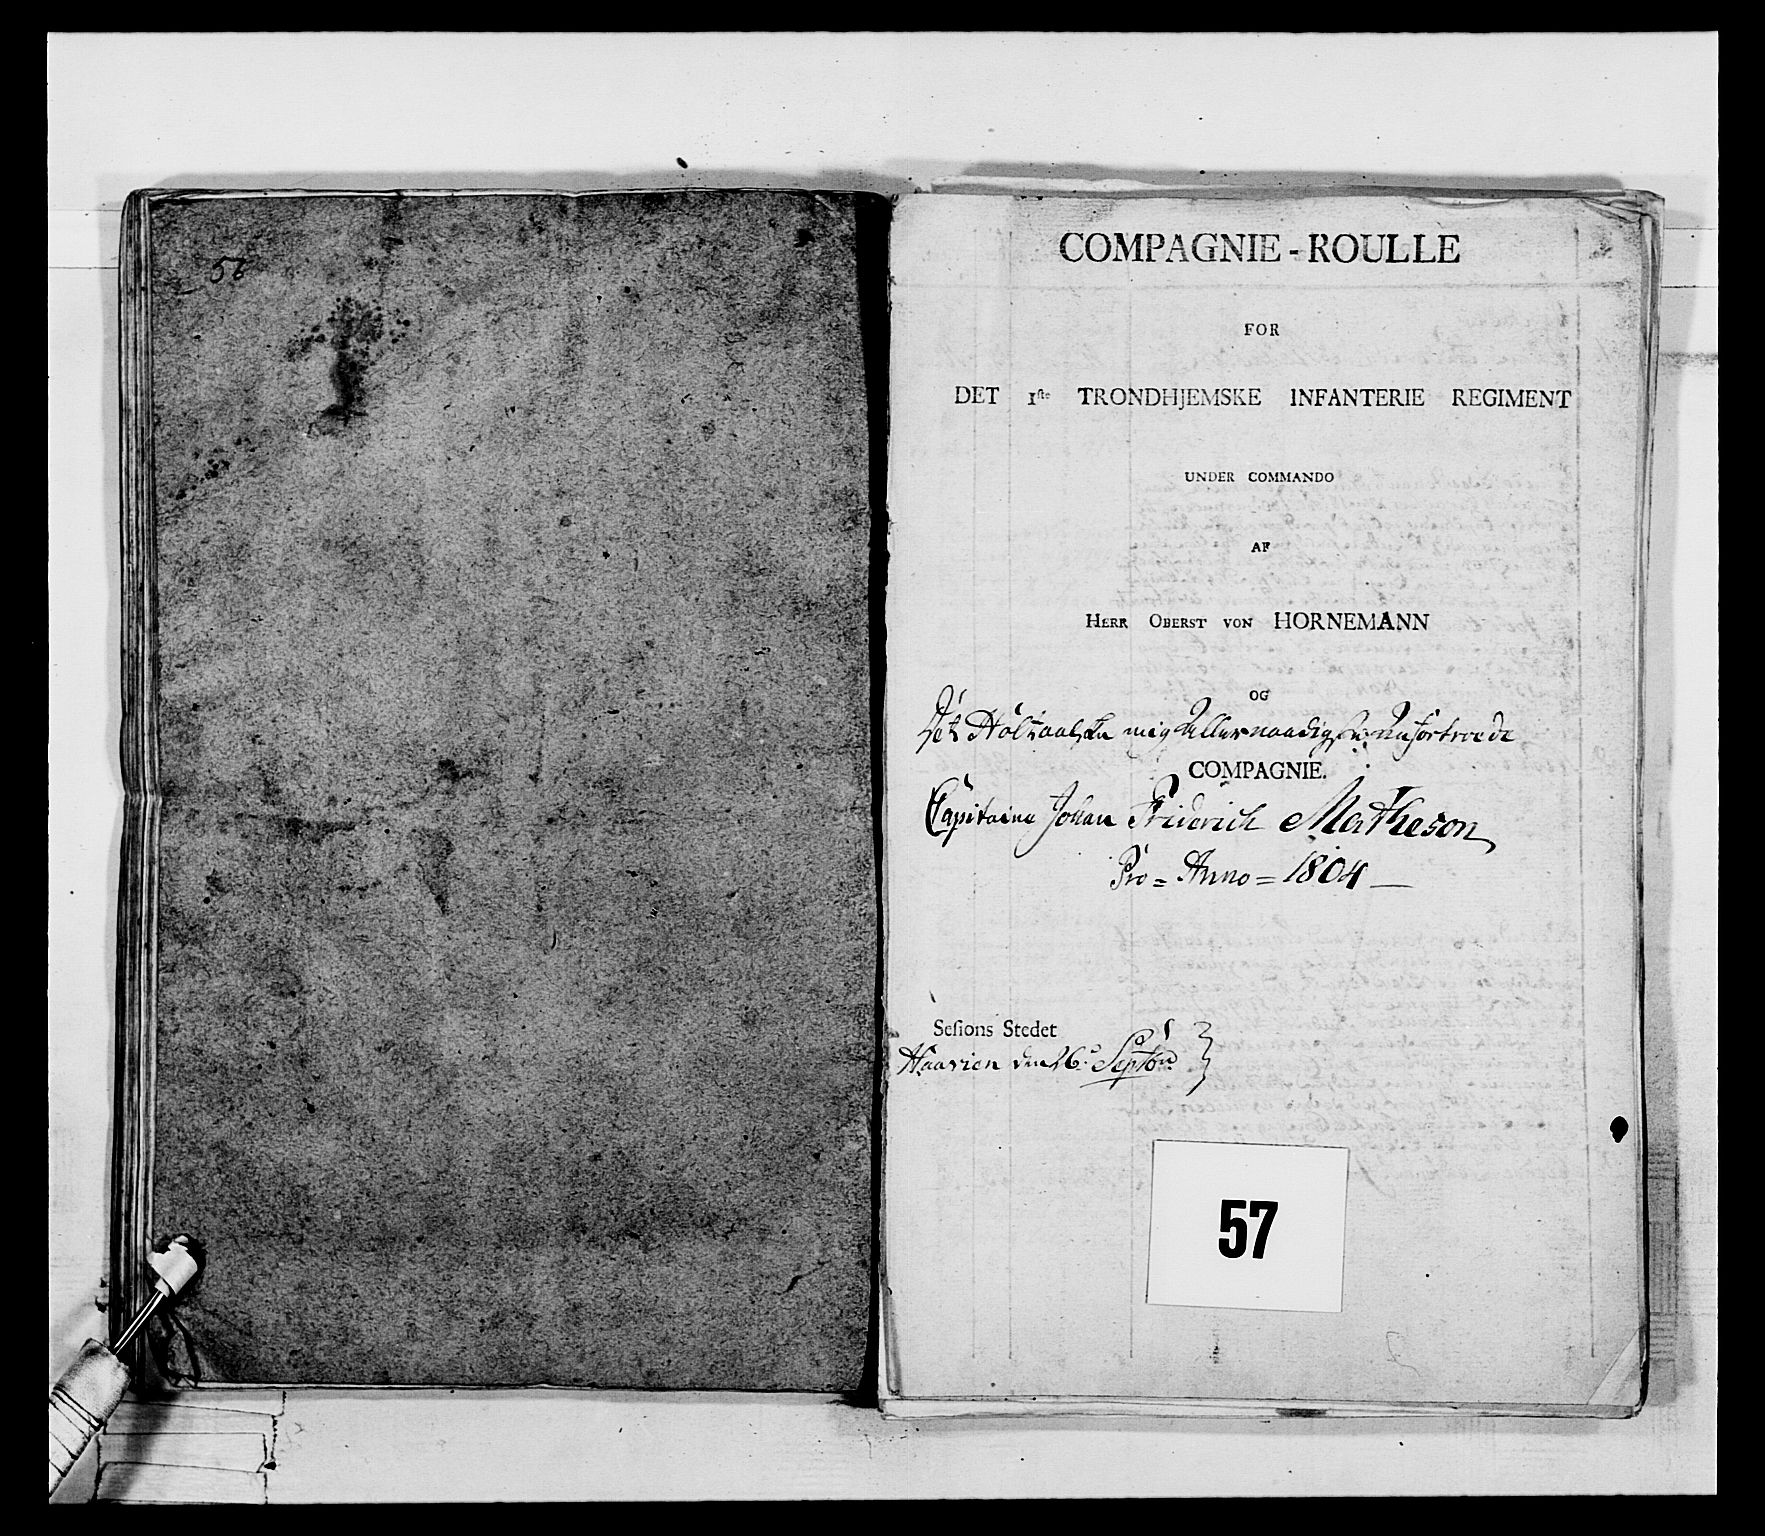 56
COMPAGNIE-ROULLE
FOR
DET 1ste TRONDHJEMSKE INFANTERIE REGIMENT
UNDER COMMANDO
AF
HERR OBERST VON HORNEMANN
OG
Det Holtaalske mig Allernaadigst Anfortroede
COMPAGNIE.
Capitaine Johan Friderich Matheson
Pro = Anno = 1804 —
Seſions Stedet
Haarien den 26de Septbr
57